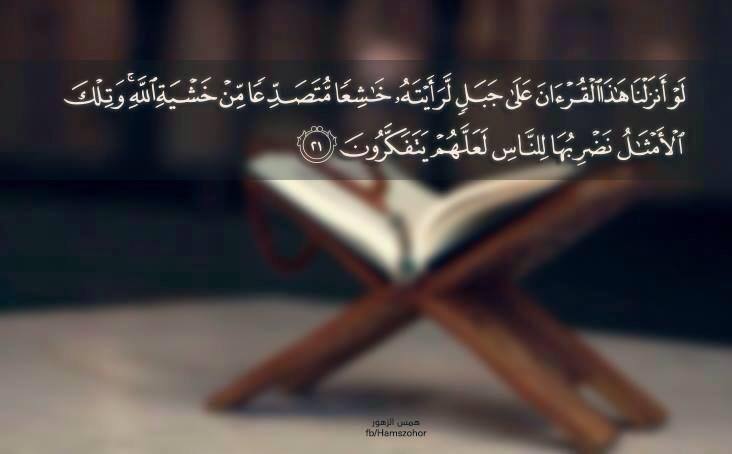 لَوْ أَنزَلْنَا هَٰذَا ٱلْقُرْءَانَ عَلَىٰ جَبَلٍ لَّرَأَيْتَهُۥ خَٰشِعًا مُّتَصَدِّعًا مِّنْ خَشْيَةِ ٱللَّهِ ۚ وَتِلْكَ
ٱلْأَمْثَٰلُ نَضْرِبُهَا لِلنَّاسِ لَعَلَّهُمْ يَتَفَكَّرُونَ ٢١
همس الزهور
fb/Hamszohor